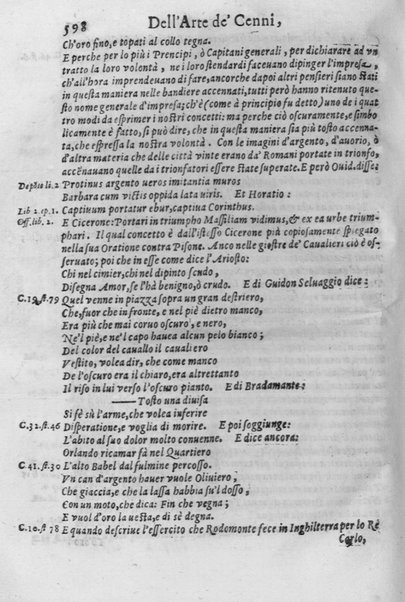 598 Dell'Arte de' Cenni,
Ch'oro fino, e topati al collo tegna.
E perche per lo più i Prencipi, ò Capitani generali, per dichiarare ad vn
tratto la loro volontà, ne i loro stendardi faceuano dipinger l'impresa,
ch'all'hora imprendeuano di fare, ancorche dapoi altri pensieri siano stati
in questa maniera nelle bandiere accennati, tutti però hanno ritenuto que-
sto nome generale d'impresa; ch'è (come à principio fu detto) uno de i quat
tro modi da esprimer i nostri concetti: ma perche ciò oscuramente, e simbo
licamente è fatto, si può dire, che in questa maniera sia più tosto accenna-
ta, che espressa la nostra volontà. Con le imagini d'argento, d'auorio, ò
d'altra materia che delle città vinte erano da' Romani portate in trionfo,
accēnauano quelle da i trionfatori essere state superate. E però Ouid. disse:
De pōto li. 2 Protinus argento ueros imitantia muros
Barbara cum victis oppida lata uiris. Et Horatio:
Lib 2. ep. 1. Captiuum portatur ebur, captiua Corinthus.
Off. lib. 2. E Cicerone: Portari in triumpho Massiliam vidimus, & ex ea urbe trium-
phari. Il qual concetto è dall'istesso Cicerone più copiosamente spiegato
nella sua Oratione contra Pisone. Anco nelle giostre de' Caualieri ciò è os-
seruato; poi che in esse come dice l'Ariosto:
Chi nel cimier, chi nel dipinto scudo,
Disegna Amor, se l'hà benigno, ò crudo. E di Guidon Seluaggio dice:
C. 19. st 79 Quel venne in piazza sopra un gran destriero,
Che, fuor che in fronte, e nel piè dietro manco,
Era più che mai coruo oscuro, e nero,
Ne'l piè, e ne'l capo hauea alcun pelo bianco;
Del color del cauallo il caualiero
Vestito, volea dir, che come manco
De l'oscuro era il chiaro, era altrettanto
Il riso in lui verso l'oscuro pianto. E di Bradamante:
—— Tosto una diuisa
Si fè sù l'arme, che volea inferire
C. 32. st. 46 Disperatione, e voglia di morire. E poi soggiunge:
L'abito al suo dolor molto conuenne. E dice ancora:
Orlando ricamar fà nel Quartiero
C 41. st. 30 L'alto Babel dal fulmine percosso.
Vn can d'argento hauer vuole Oliuiero,
Che giaccia, e che la lassa habbia su'l dosso,
Con un moto, che dica: Fin che vegna;
E vuol d'oro la uesta, e di sè degna.
C. 10. st 78 E quando descriue l'essercito che Rodomonte fece in Inghilterra per lo Rè
Carlo,